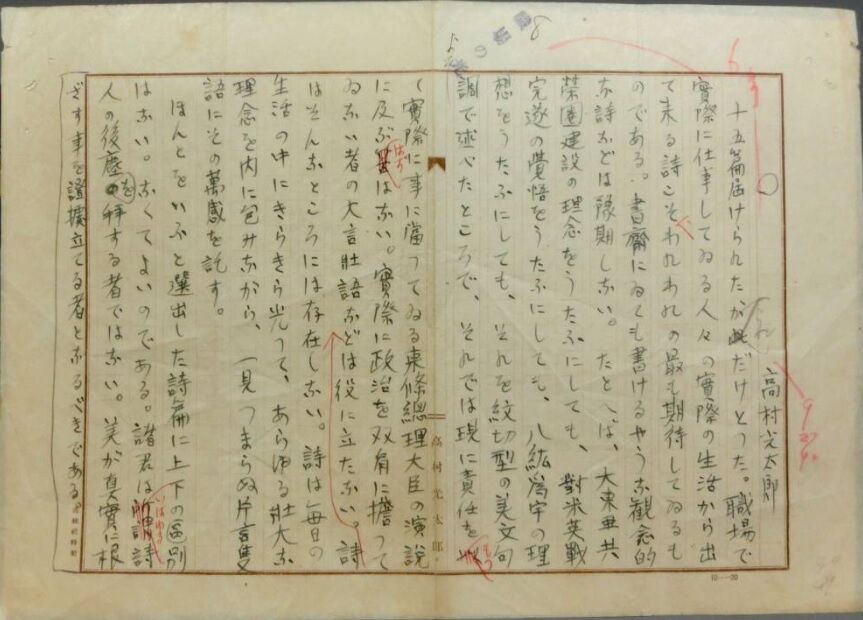 高村光太郎
十五篇届けられたが此だけとつた。職場で
實際に仕事してゐる人々の實際の生活から出
て来る詩こそわれわれの最も期待してゐるも
のである。書齋にゐても書けるやうな觀念的
な詩などは豫期しない。たとへば、大東亜共
榮圏建設の理念をうたふにしても、對米英戰
完遂の覺悟をうたふにしても、八紘爲宇の理
想をうたふにしても、それを紋切型の美文句
調で述べたところで、それでは現に責任を
もつ
て實際に事に當つてゐる東條總理大臣の演説
に及ぶ
はずは
ない。實際に政治を双肩に擔つて
ゐない者の大言壯語などは役に立たない。詩
はそんなところには存在しない。詩は毎日の
生活の中にきらきら光つて、あらゆる壯大な
理念を内に包みながら、一見つまらぬ片言隻
語にその萬感を託す。
ほんとをいふと選出した詩篇に上下の區別
はない。なくてよいのである。諸君は
いはゆる
詩
人の後塵を拜する者ではない。美が真實に根
ざす事を證據立てる者となるべきである。
高村光太郎
10—20